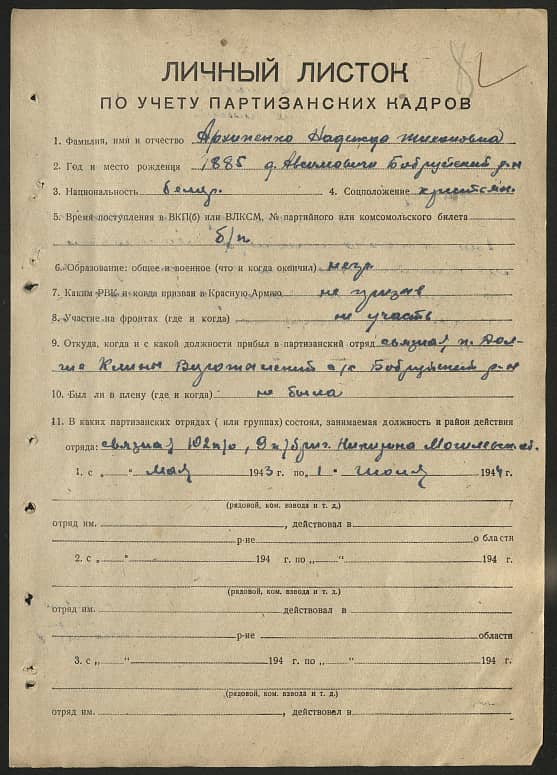 ЛИЧНЫЙ ЛИСТОК
ПО УЧЕТУ ПАРТИЗАНСКИХ КАДРОВ
1. Фамилия, имя и отчество Архипенко Надежда Тихоновна
2. Год и место рождения 1885 д. Авсимовичи Бобруйский р-н
3. Национальность белор. 4. Соцположение крестьян.
5. Время поступления в ВКП(б) или ВЛКСМ, № партийного или комсомольского билета
б/п
6. Образование: общее и военное (что и когда окончил) негр.
7. Каким РВК и когда призван в Красную Армию не призв
8. Участие на фронтах (где и когда) не участв
9. Откуда, когда и с какой должности прибыл в партизанский отряд связная п. Дол-
гие с/с Бобруйский р-н
10. Был ли в плену (где и когда) не была
11. В каких партизанских отрядах ( или группах) состоял, занимаемая должность и район действия
отряда: связная 102 п/о, 9 п/бриг. Могилевск. об.
1. с „ “ мая 1943 г. по „ 1 “ июля 1944 г.
(рядовой, ком. взвода и т. д.)
отряд им. , действовал в
р-не о бласти
2. с „ “ 194 г. по „ “ 194 г.
(рядовой, ком. взвода и т. д.)
отряд им. действовал в
р-не области
3. с „ “ 194 г. по „ “ 194 г.
(рядовой, ком. взвода и т. д.)
отряд им. , действовал в